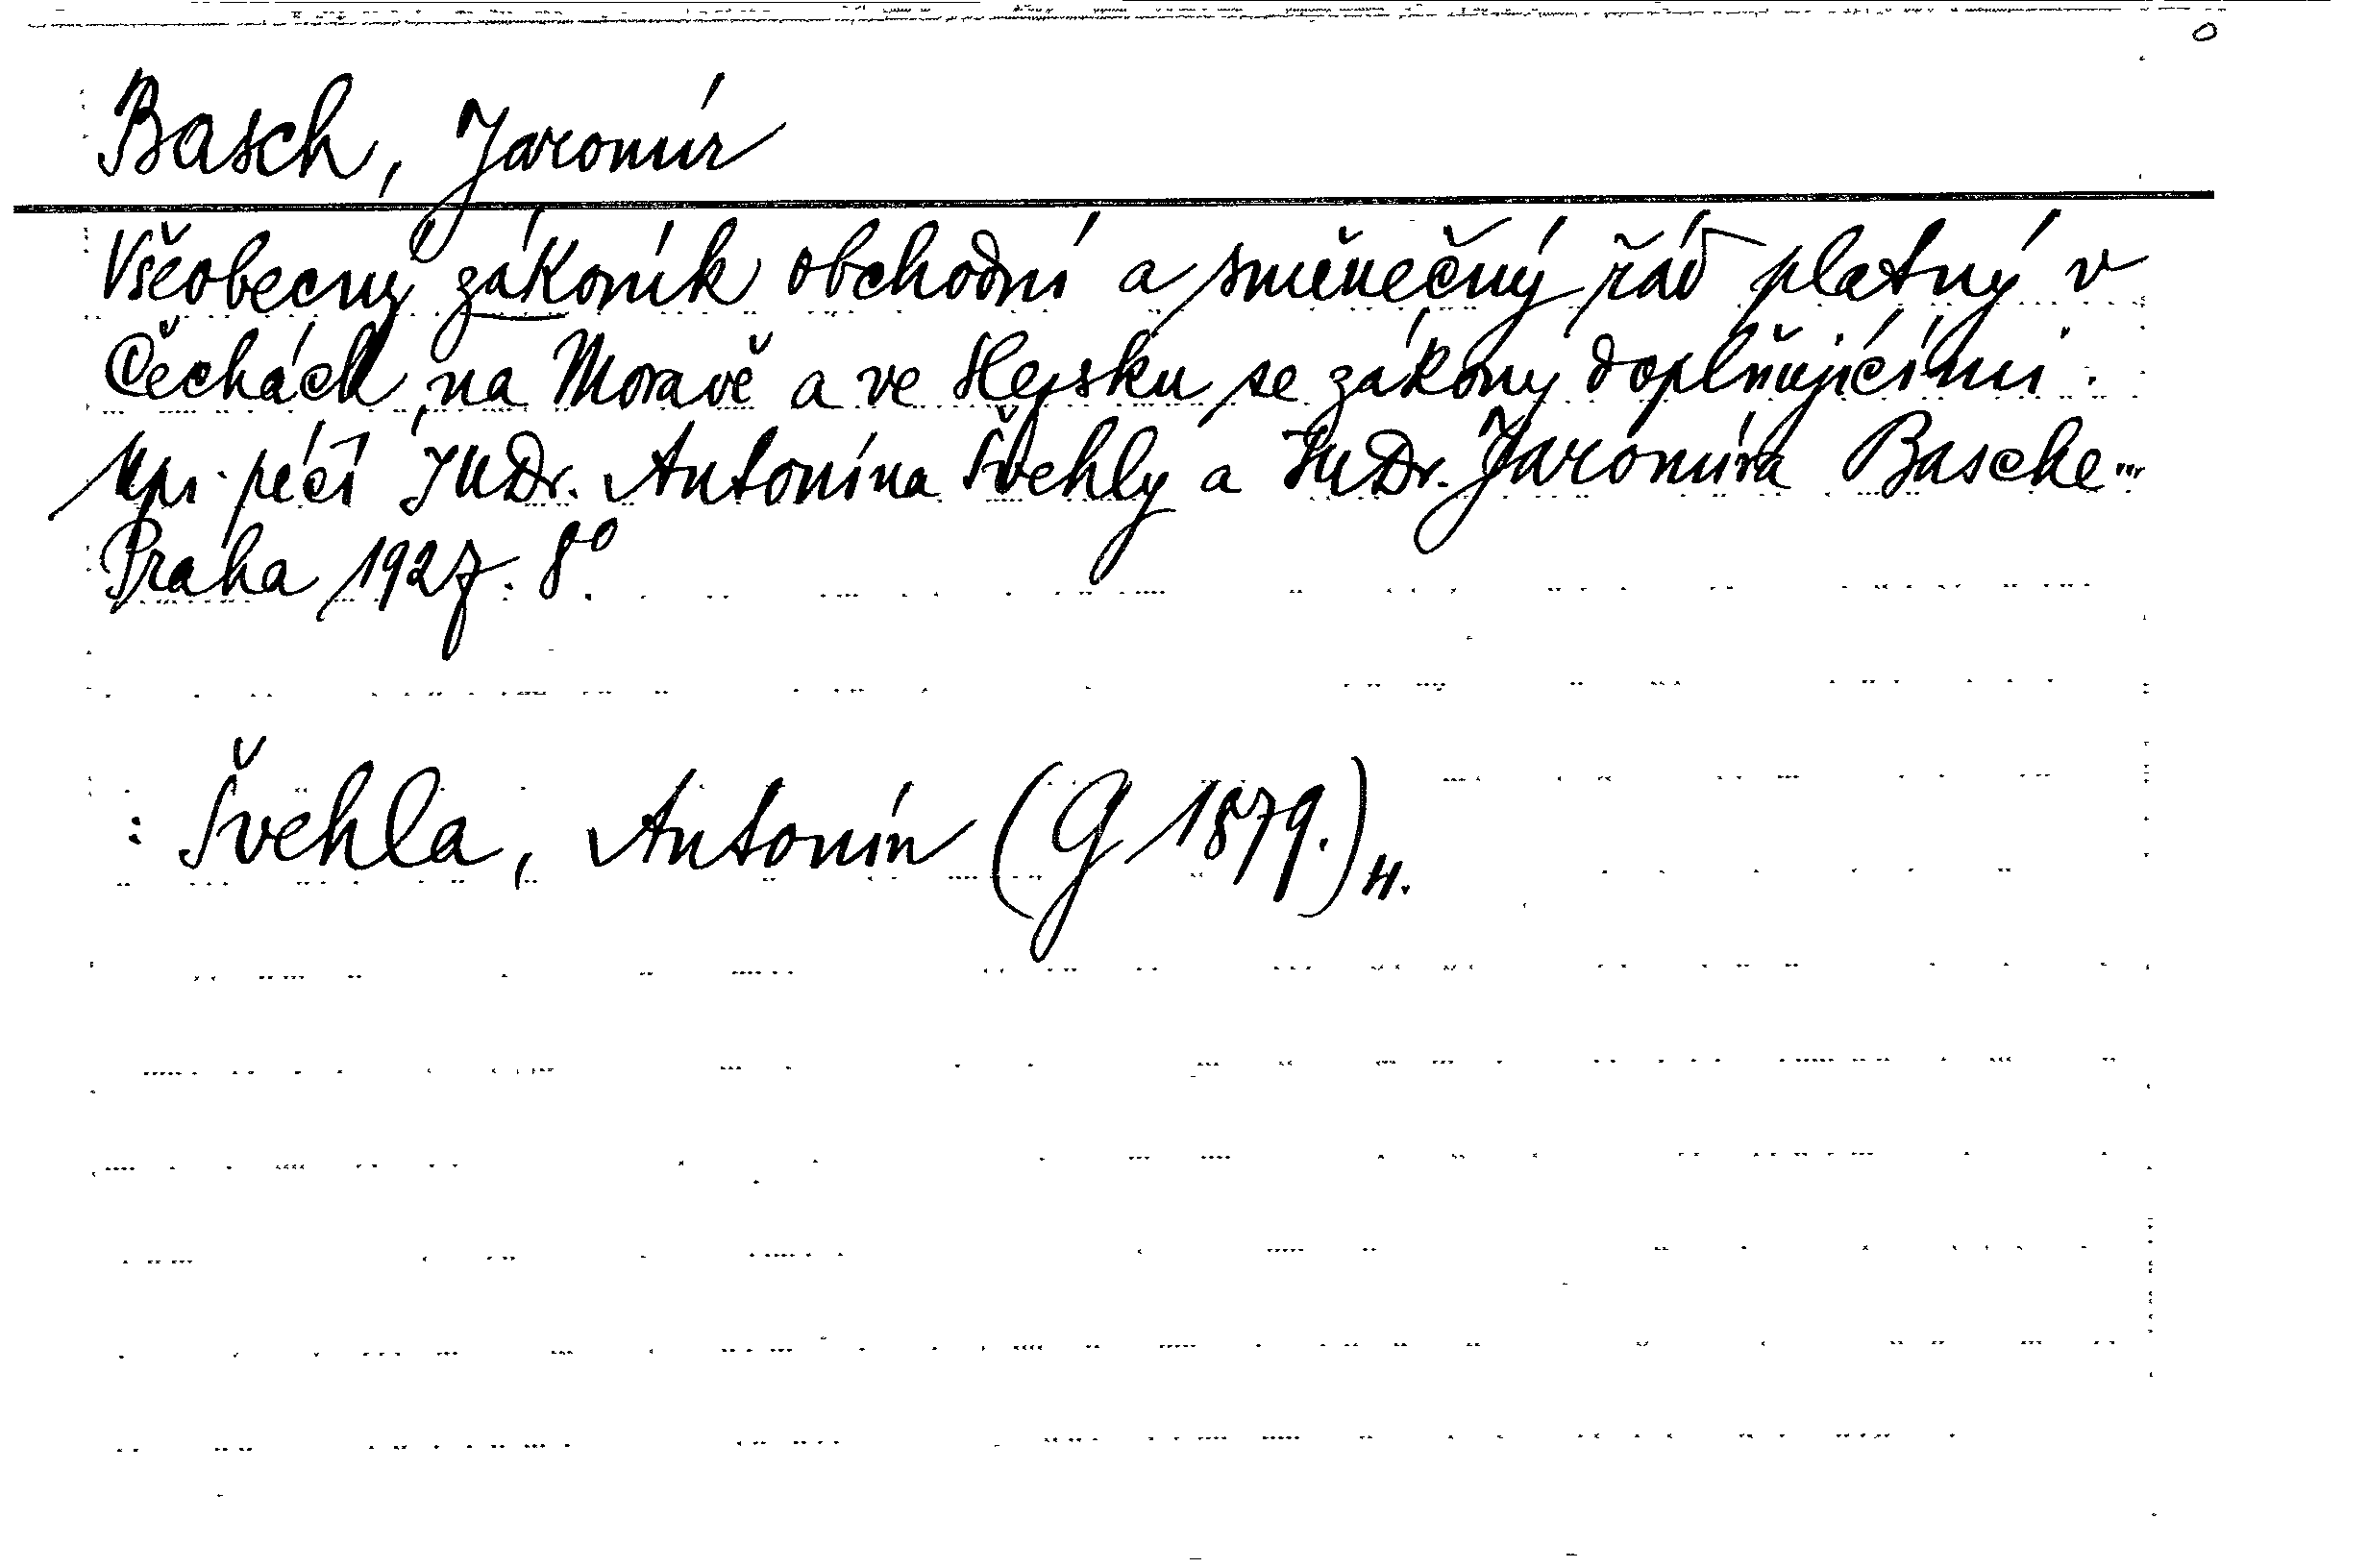 Basch, Jaromír
Všeobecný zákoník obchodní a směnečný řád platný v
Čechách, na Moravě a ve Slezsku se zákony doplňujícími.
Upr. péčí JUDr. Antonína Švehly a JUDr. Jaromíra Basche...
Praha 1927. 8°.
: Švehla, Antonín (G 1879.) H.